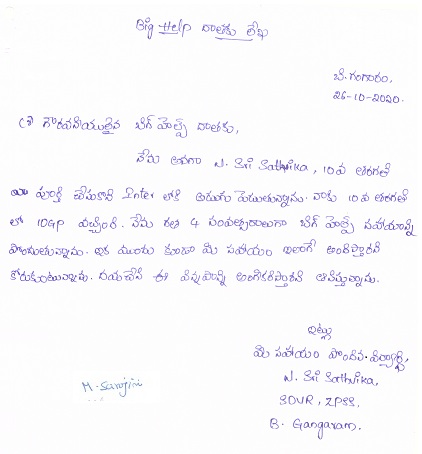 Big Help దాతకు లేఖ
బి. గంగారం,
26-10-2020.
గౌరవనీయులైన బిగ్ హెల్ప్ దాతకు,
నేను అనగా N. Sri Sathvika, 10వ తరగతి
పూర్తి చేసుకొని Inter లోకి అడుగు పెడుతున్నాను. నాకు 10వ తరగతి
లో 10GP వచ్చింది. నేను గత 4 సంవత్సరాలుగా బిగ్ హెల్ప్ సహాయాన్ని
పొందుతున్నాను. ఇక ముందు కూడా మీ సహాయం ఇలాగే అందిస్తారని
కోరుకుంటున్నాను. దయచేసి ఈ విన్నపాన్ని అంగీకరిస్తారని ఆశిస్తున్నాను.
ఇట్లు
మీ సహాయం పొందిన విద్యార్థి,
N. Sri Sathvika,
SDVR, ZPSS,
B. Gangaram.
M. Sarojini